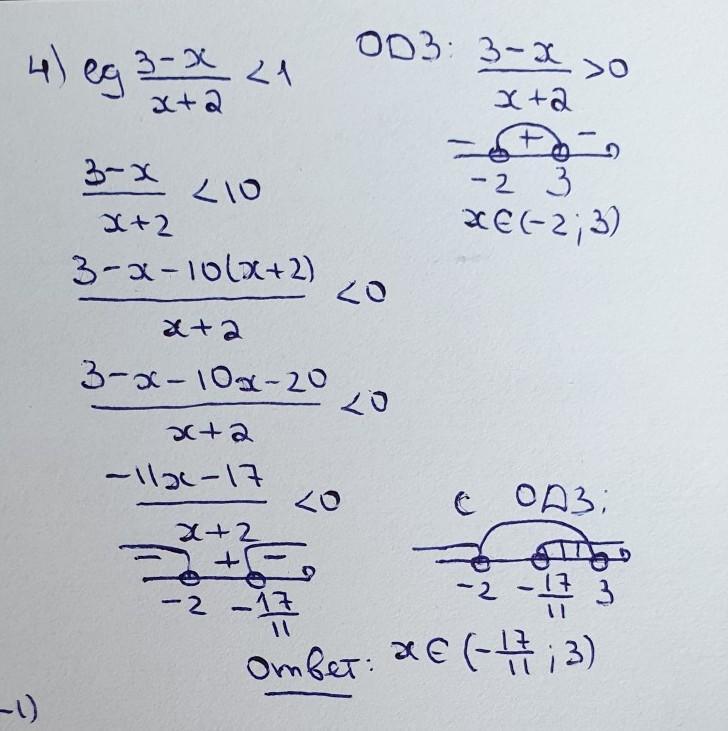 4) lg (3-x)/(x+2) < 1
ОДЗ: (3-x)/(x+2) > 0
- + -
-2 3
x∈(-2; 3)
(3-x)/(x+2) < 10
(3-x-10(x+2))/(x+2) < 0
(3-x-10x-20)/(x+2) < 0
(-11x-17)/(x+2) < 0
- + -
-2 -17/11
с ОДЗ:
-2 -17/11 3
Ответ: x∈(-17/11; 3)
-1)